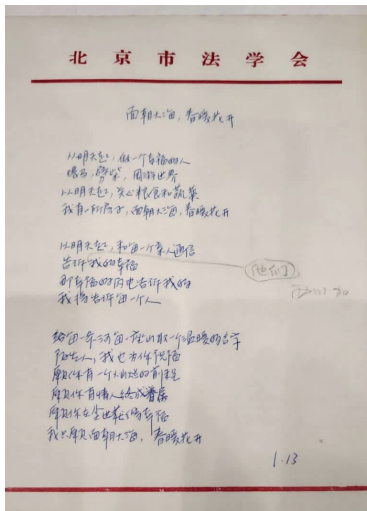 北京市法学会
面朝大海，春暖花开
从明天起，做一个幸福的人
喂马，劈柴，周游世界
从明天起，关心粮食和蔬菜
我有一所房子，面朝大海，春暖花开
从明天起，和每一个亲人通信
告诉他们我的幸福
那幸福的闪电告诉我的
我将告诉每一个人
给每一条河每一座山取一个温暖的名字
陌生人，我也为你祝福
愿你有一个灿烂的前程
愿你有情人终成眷属
愿你在尘世获得幸福
我只愿面朝大海，春暖花开
1.13